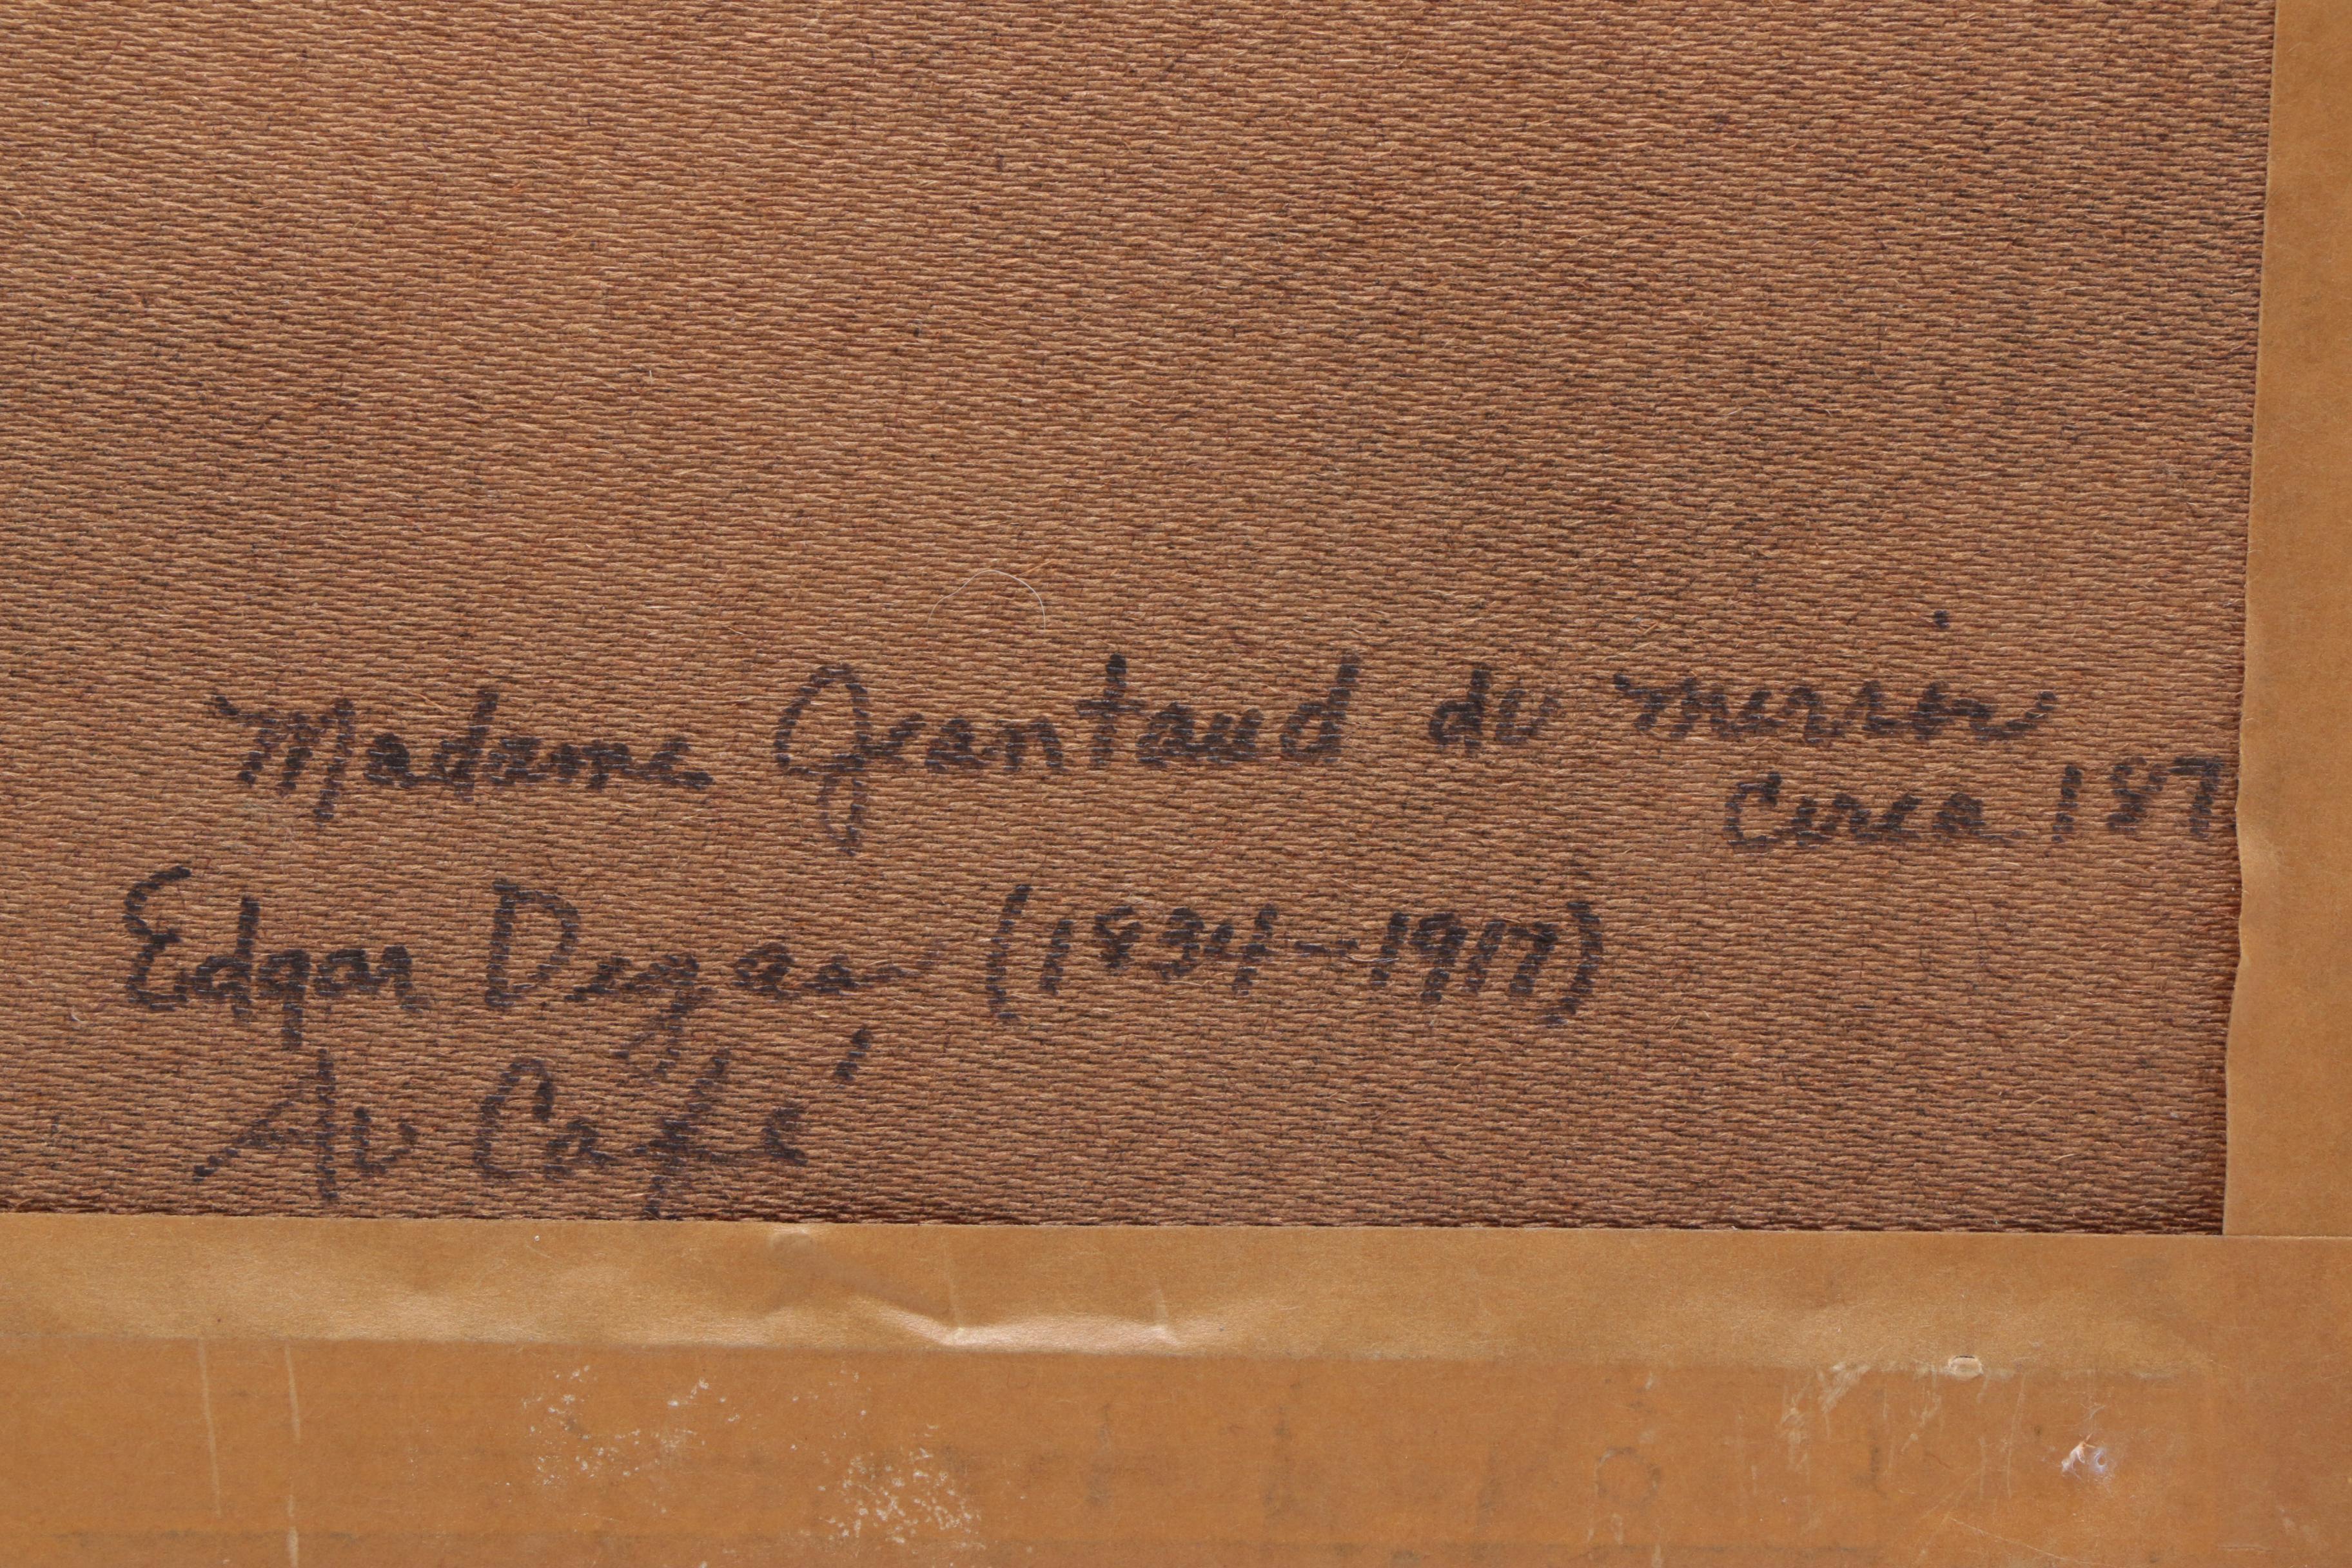 Madame Jeantaud du mirroir
circa 187
Edgar Degas (1834-1917)
Au Café